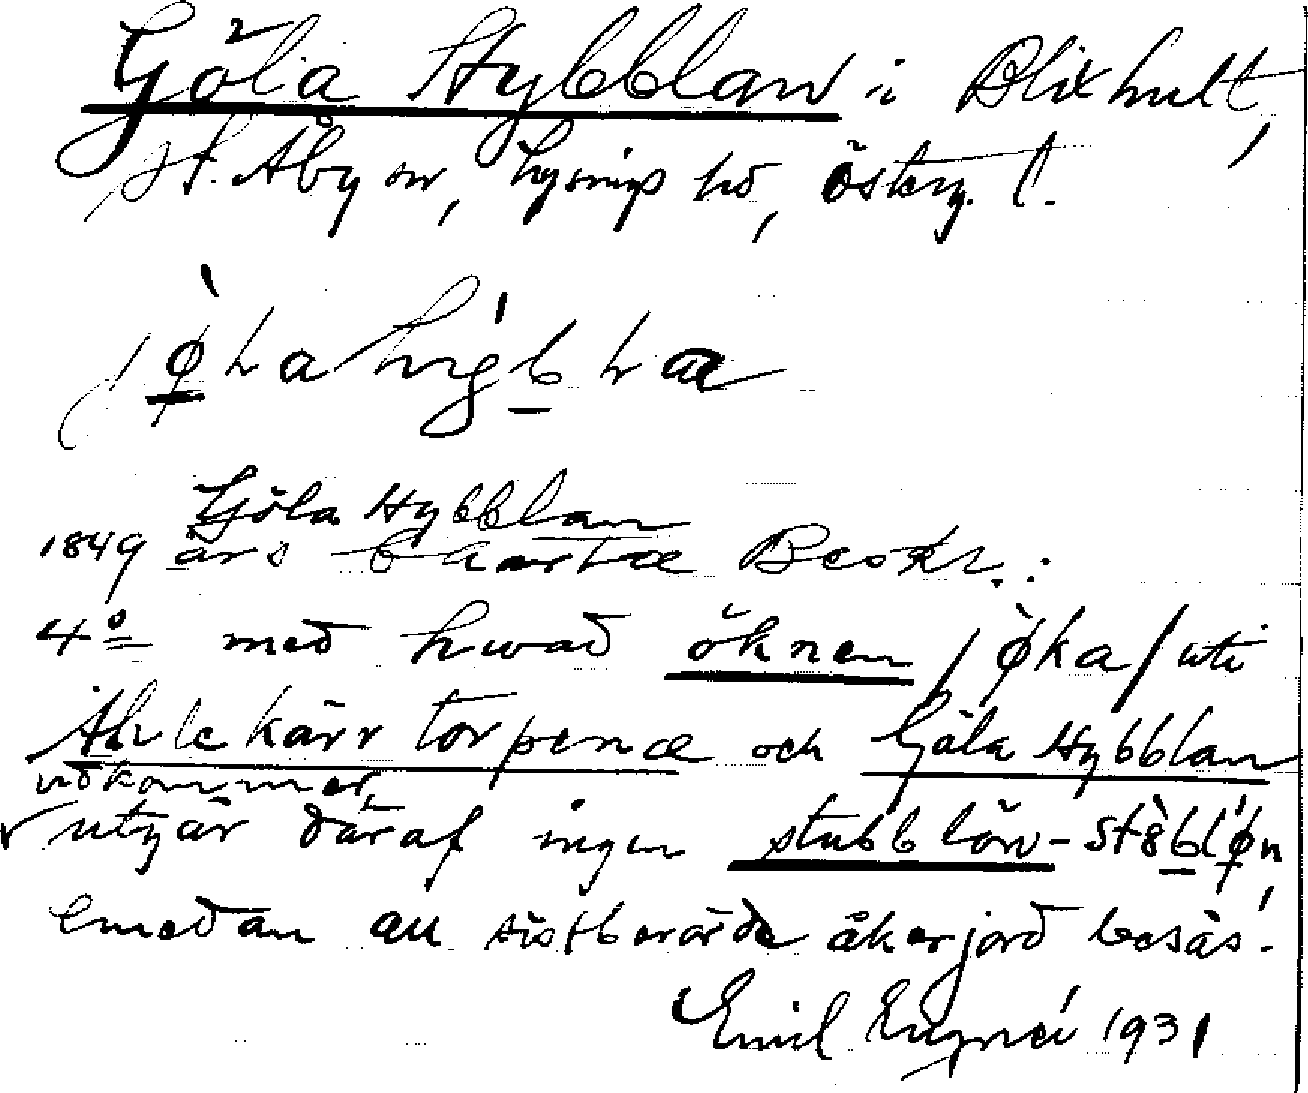 Göla Hybblan i Blixhult,
St. Åby sn, Lysings hd, Österg. l.
Göla Hybblan
1849 års Charta Beskr.:
4º med hwad öknen /øka/ uti
Ahlekärr torpena och Göla Hybblan
vidkommer,
utgår däraf ingen stubblön-
emedan all sistberörde åkerjord besås.
Emil 1931